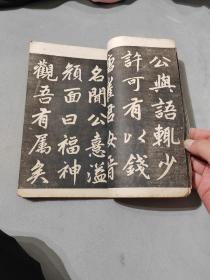 公與語輒少
許可有以錢
名聞公憙溢
顏面曰福神
觀吾有属矣